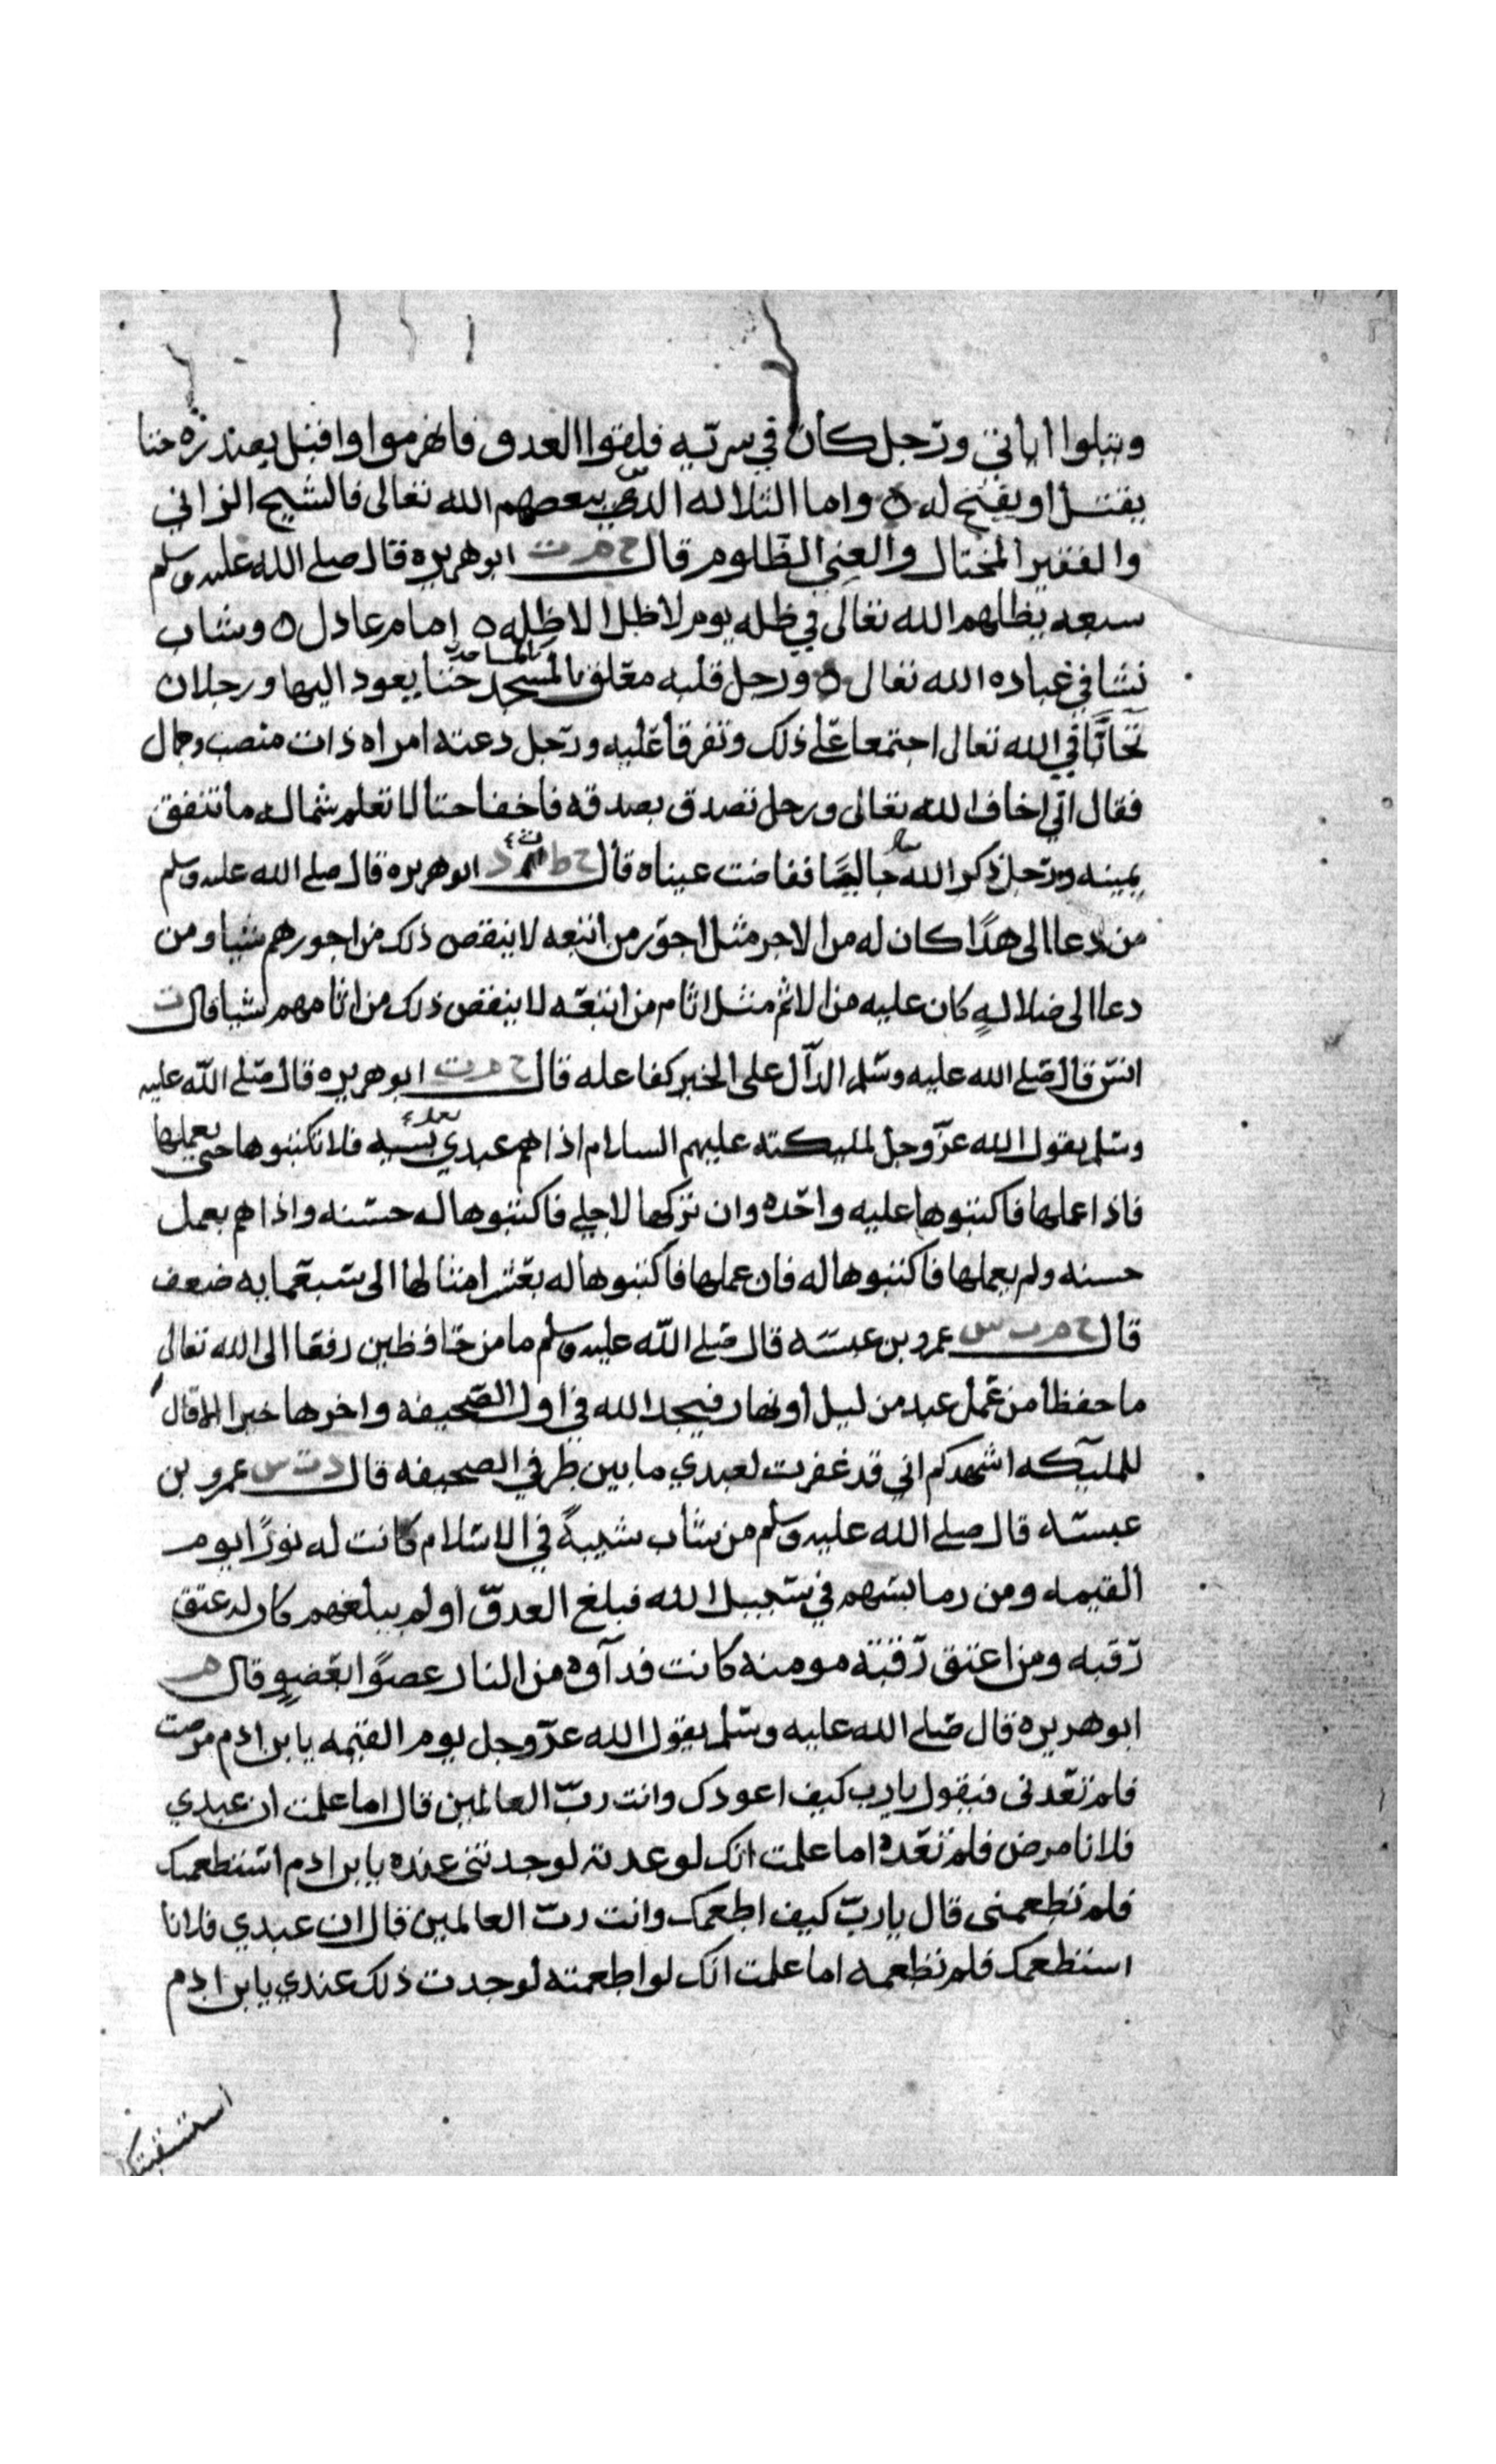 ويتلوا اياتي ورجل كان في سريه فلقوا العدو فانهزموا واقبل بصدره حتا
يقتل او يفتح له ه واما الثلاثه الذي يبغضهم الله تعالى فالشيخ الزاني
والفقير المختال والغني الظلوم قال خ م ت ابو هريره قال صلى الله عليه وسلم
سبعه يظلهم الله تعالى في ظله يوم لا ظل الا ظله ه امام عادل ه وشاب
نشا في عباده الله تعالى ه ورجل قلبه معلق بالمسجد حتا يعود اليها ورجلان
بالمساجد
تحابا في الله تعالى اجتمعا على ذلك وتفرقا عليه ورجل دعته امراه ذات منصب وجمال
فقال اني اخاف الله تعالى ورجل تصدق بصدقه فاخفا حتا لا تعلم شماله ما تنفق
يمينه ورجل ذكر الله خاليا ففاضت عيناه قال ابو هريره قال صلى الله عليه وسلم
من دعا الى هدا كان له من الاجر مثل اجور من اتبعه لا ينقص ذلك من اجورهم شيا ومن
دعا الى ضلاله كان عليه من الاثم مثل اثام من اتبعه لا ينقص ذلك من اثامهم شيا قال ت
انس قال صلى الله عليه وسلم الدال على الخير كفاعله قال خ م ت ابو هريره قال صلى الله عليه
وسلم يقول الله عز وجل لمليكته عليهم السلام اذا هم عبدي بسيه فلا تكتبوها حتى يعملها
فاذا عملها فاكتبوها عليه واحده وان تركها لاجلي فاكتبوها له حسنه واذا هم بعمل
حسنه ولم يعملها فاكتبوها له فان عملها فاكتبوها له بعشر امثالها الى سبعمايه ضعف
قال عمرو بن عبسه قال صلى الله عليه وسلم ما من حافظين رفعا الى الله تعالى
ما حفظا من عمل عبد من ليل او نهار فيجد الله في اول الصحيفه واخرها خيرا الا قال
للمليكه اشهدكم اني قد غفرت لعبدي ما بين طرفي الصحيفه قال د ت س عمرو بن
عبسه قال صلى الله عليه وسلم من شاب شيبة في الاسلام كانت له نورا يوم
القيمه ومن رما بسهم في سبيل الله فبلغ العدو او لم يبلغهم كان له عتق
رقبه ومن اعتق رقبته مومنه كانت فداوه من النار عضوا بعضو قال م
ابو هريره قال صلى الله عليه وسلم يقول الله عز وجل يوم القيمه يا بن ادم مرضت
فلم تعدنى فيقول يا رب كيف اعودك وانت رب العالمين قال اما علمت ان عبدي
فلانا مرض فلم تعده اما علمت انك لو عدته لوجدتنى عنده يا بن ادم استطعمك
فلم تطعمنى قال يا رب كيف اطعمك وانت رب العالمين قال ان عبدي فلانا
استطعمك فلم تطعمه اما علمت انك لو اطعمته لوجدت ذلك عندي يا بن ادم
استسقيتك